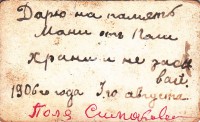 Дарю на память
Мани отъ Паш
Храни и не забы
вай.
1906 го года 3го августа
Поля